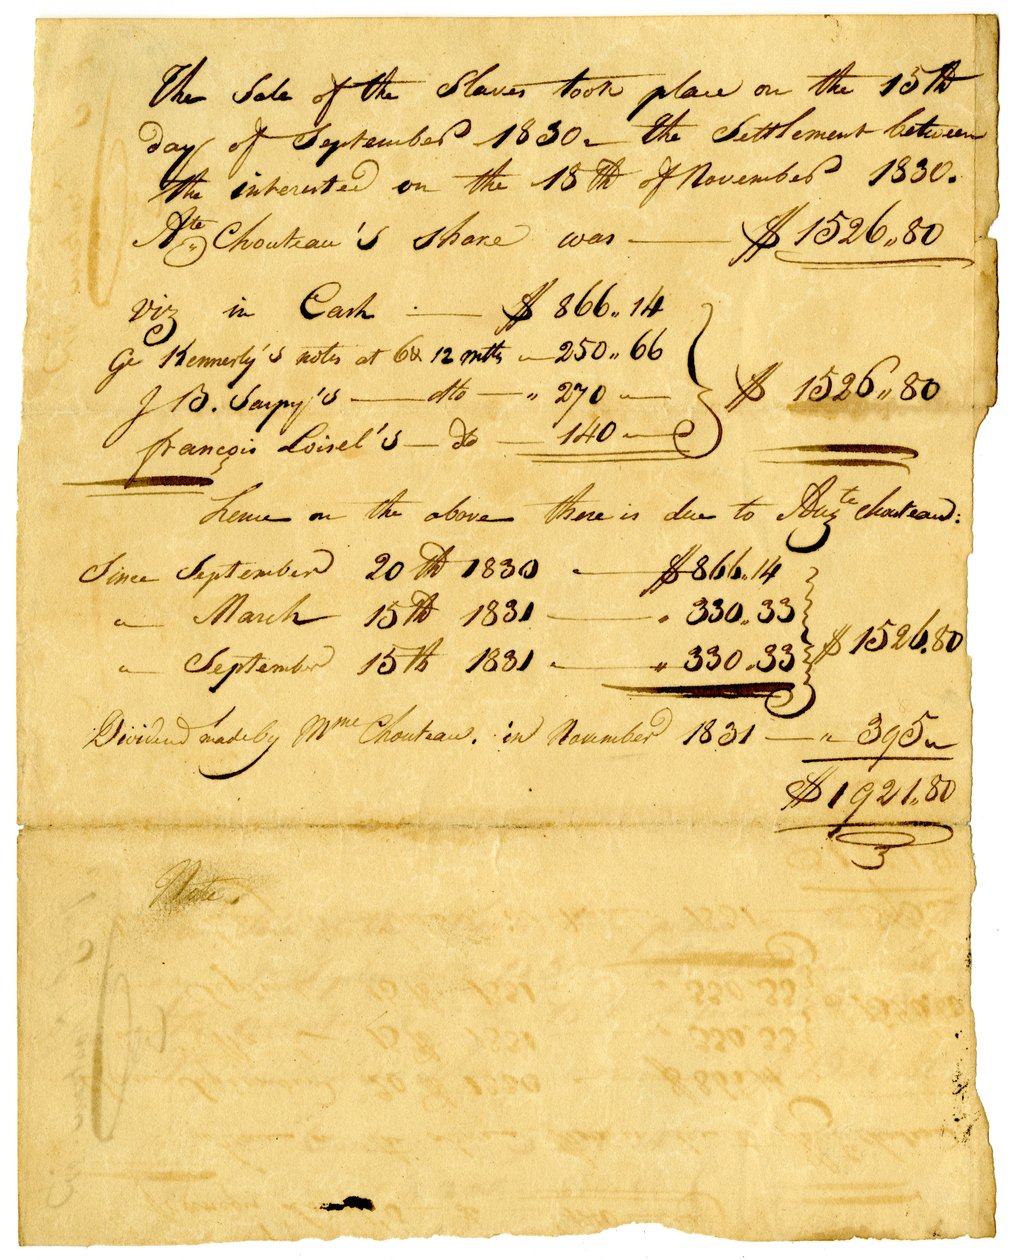 The Sale of the Slaves took place on the 15th
day of September 1830 – the Settlement between
the interested on the 18th of November 1830.
Ate Chouteau's share was — $ 1526,,80
viz in Cash — $ 866,,14
Ge Kennerly's notes at 6 & 12 mths – 250,,66
J B. Sarpy's — dto — ,, 270 –
françois Loisel's — do — 140 –
$ 1526,,80
hence on the above there is due to Augte Chouteau:
Since September 20th 1830 — $ 866,,14
,, March 15th 1831 — ,, 330,,33
,, September 15th 1831 — ,, 330,,33
$ 1526.80
Dividend made by Mme Chouteau. in November 1831 — ,, 395 ,,
$ 1921,,80
Note.